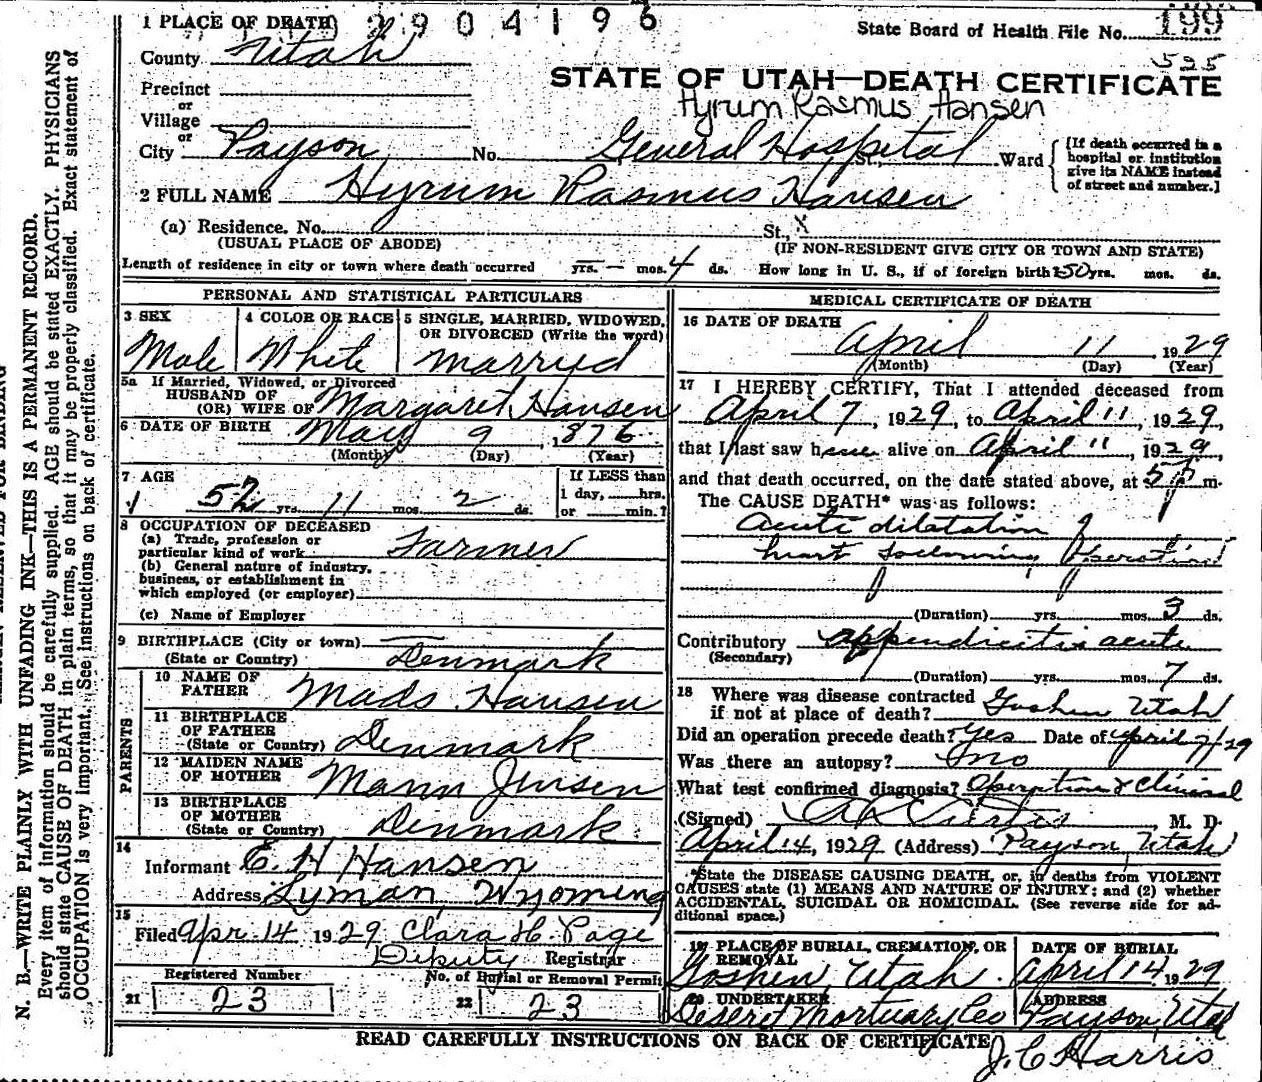 1 PLACE OF DEATH 2904196
State Board of Health File No. 199
525
County Utah
STATE OF UTAH—DEATH CERTIFICATE
Hyrum Rasmus Hansen
Precinct
or
Village
or
City Payson No. General Hospital St., Ward
{If death occurred in a
hospital or institution
give its NAME instead
of street and number.]
2 FULL NAME Hyrum Rasmus Hansen
(a) Residence. No. St., X
(USUAL PLACE OF ABODE) (IF NON-RESIDENT GIVE CITY OR TOWN AND STATE)
Length of residence in city or town where death occurred yrs. — mos. 4 ds. How long in U. S., if of foreign birth? 50 yrs. mos. ds.
PERSONAL AND STATISTICAL PARTICULARS
3 SEX 4 COLOR OR RACE 5 SINGLE, MARRIED, WIDOWED,
OR DIVORCED (Write the word)
Male White marryd
5a If Married, Widowed, or Divorced
HUSBAND OF
(OR) WIFE OF Margaret Hansen
6 DATE OF BIRTH May 9, 1876
(Month) (Day) (Year)
7 AGE
52 yrs. 11 mos. 2 ds.
If LESS than
1 day, hrs.
or min.?
8 OCCUPATION OF DECEASED
(a) Trade, profession or
particular kind of work Farmer
(b) General nature of industry,
business, or establishment in
which employed (or employer)
(c) Name of Employer
9 BIRTHPLACE (City or town)
(State or Country) Denmark
PARENTS
10 NAME OF
FATHER Mads Hansen
11 BIRTHPLACE
OF FATHER
(State or Country) Denmark
12 MAIDEN NAME
OF MOTHER Mann Jensen
13 BIRTHPLACE
OF MOTHER
(State or Country) Denmark
14
Informant E. H Hansen
Address Lyman, Wyoming
15
Filed Apr-14 1929 Clara H. Page
Deputy Registrar
Registered Number No. of Burial or Removal Permit
21 23 22 23
MEDICAL CERTIFICATE OF DEATH
16 DATE OF DEATH
April 11 1929
(Month) (Day) (Year)
17 I HEREBY CERTIFY, That I attended deceased from
April 7, 1929, to April 11, 1929,
that I last saw h alive on April 11, 1929,
and that death occurred, on the date stated above, at 5 P m.
The CAUSE DEATH* was as follows:
Acute dilatation of
heart following Operation
(Duration) yrs. mos. 3 ds.
Contributory appendicitis acute
(Secondary)
(Duration) yrs. mos. 7 ds.
18 Where was disease contracted
if not at place of death? Goshen Utah
Did an operation precede death? Yes Date of April 7/29
Was there an autopsy? no
What test confirmed diagnosis? Operation & Clinical
(Signed) A L Curtis M. D.
April 14, 1929 (Address) Payson, Utah
*State the DISEASE CAUSING DEATH, or, in deaths from VIOLENT
CAUSES state (1) MEANS AND NATURE OF INJURY; and (2) whether
ACCIDENTAL, SUICIDAL OR HOMICIDAL. (See reverse side for ad-
ditional space.)
19 PLACE OF BURIAL, CREMATION, OR
REMOVAL
Goshen, Utah.
DATE OF BURIAL
April 14 1929
20 UNDERTAKER
Deseret Mortuary Co
ADDRESS
Payson, Utah
READ CAREFULLY INSTRUCTIONS ON BACK OF CERTIFICATE
J. C Harris
N. B.—WRITE PLAINLY WITH UNFADING INK—THIS IS A PERMANENT RECORD.
Every item of information should be carefully supplied. AGE should be stated EXACTLY. PHYSICIANS
should state CAUSE OF DEATH in plain terms, so that it may be properly classified. Exact statement of
OCCUPATION is very important. See instructions on back of certificate.